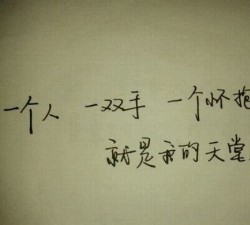 一个人 一双手 一个怀抱
就是我的天堂